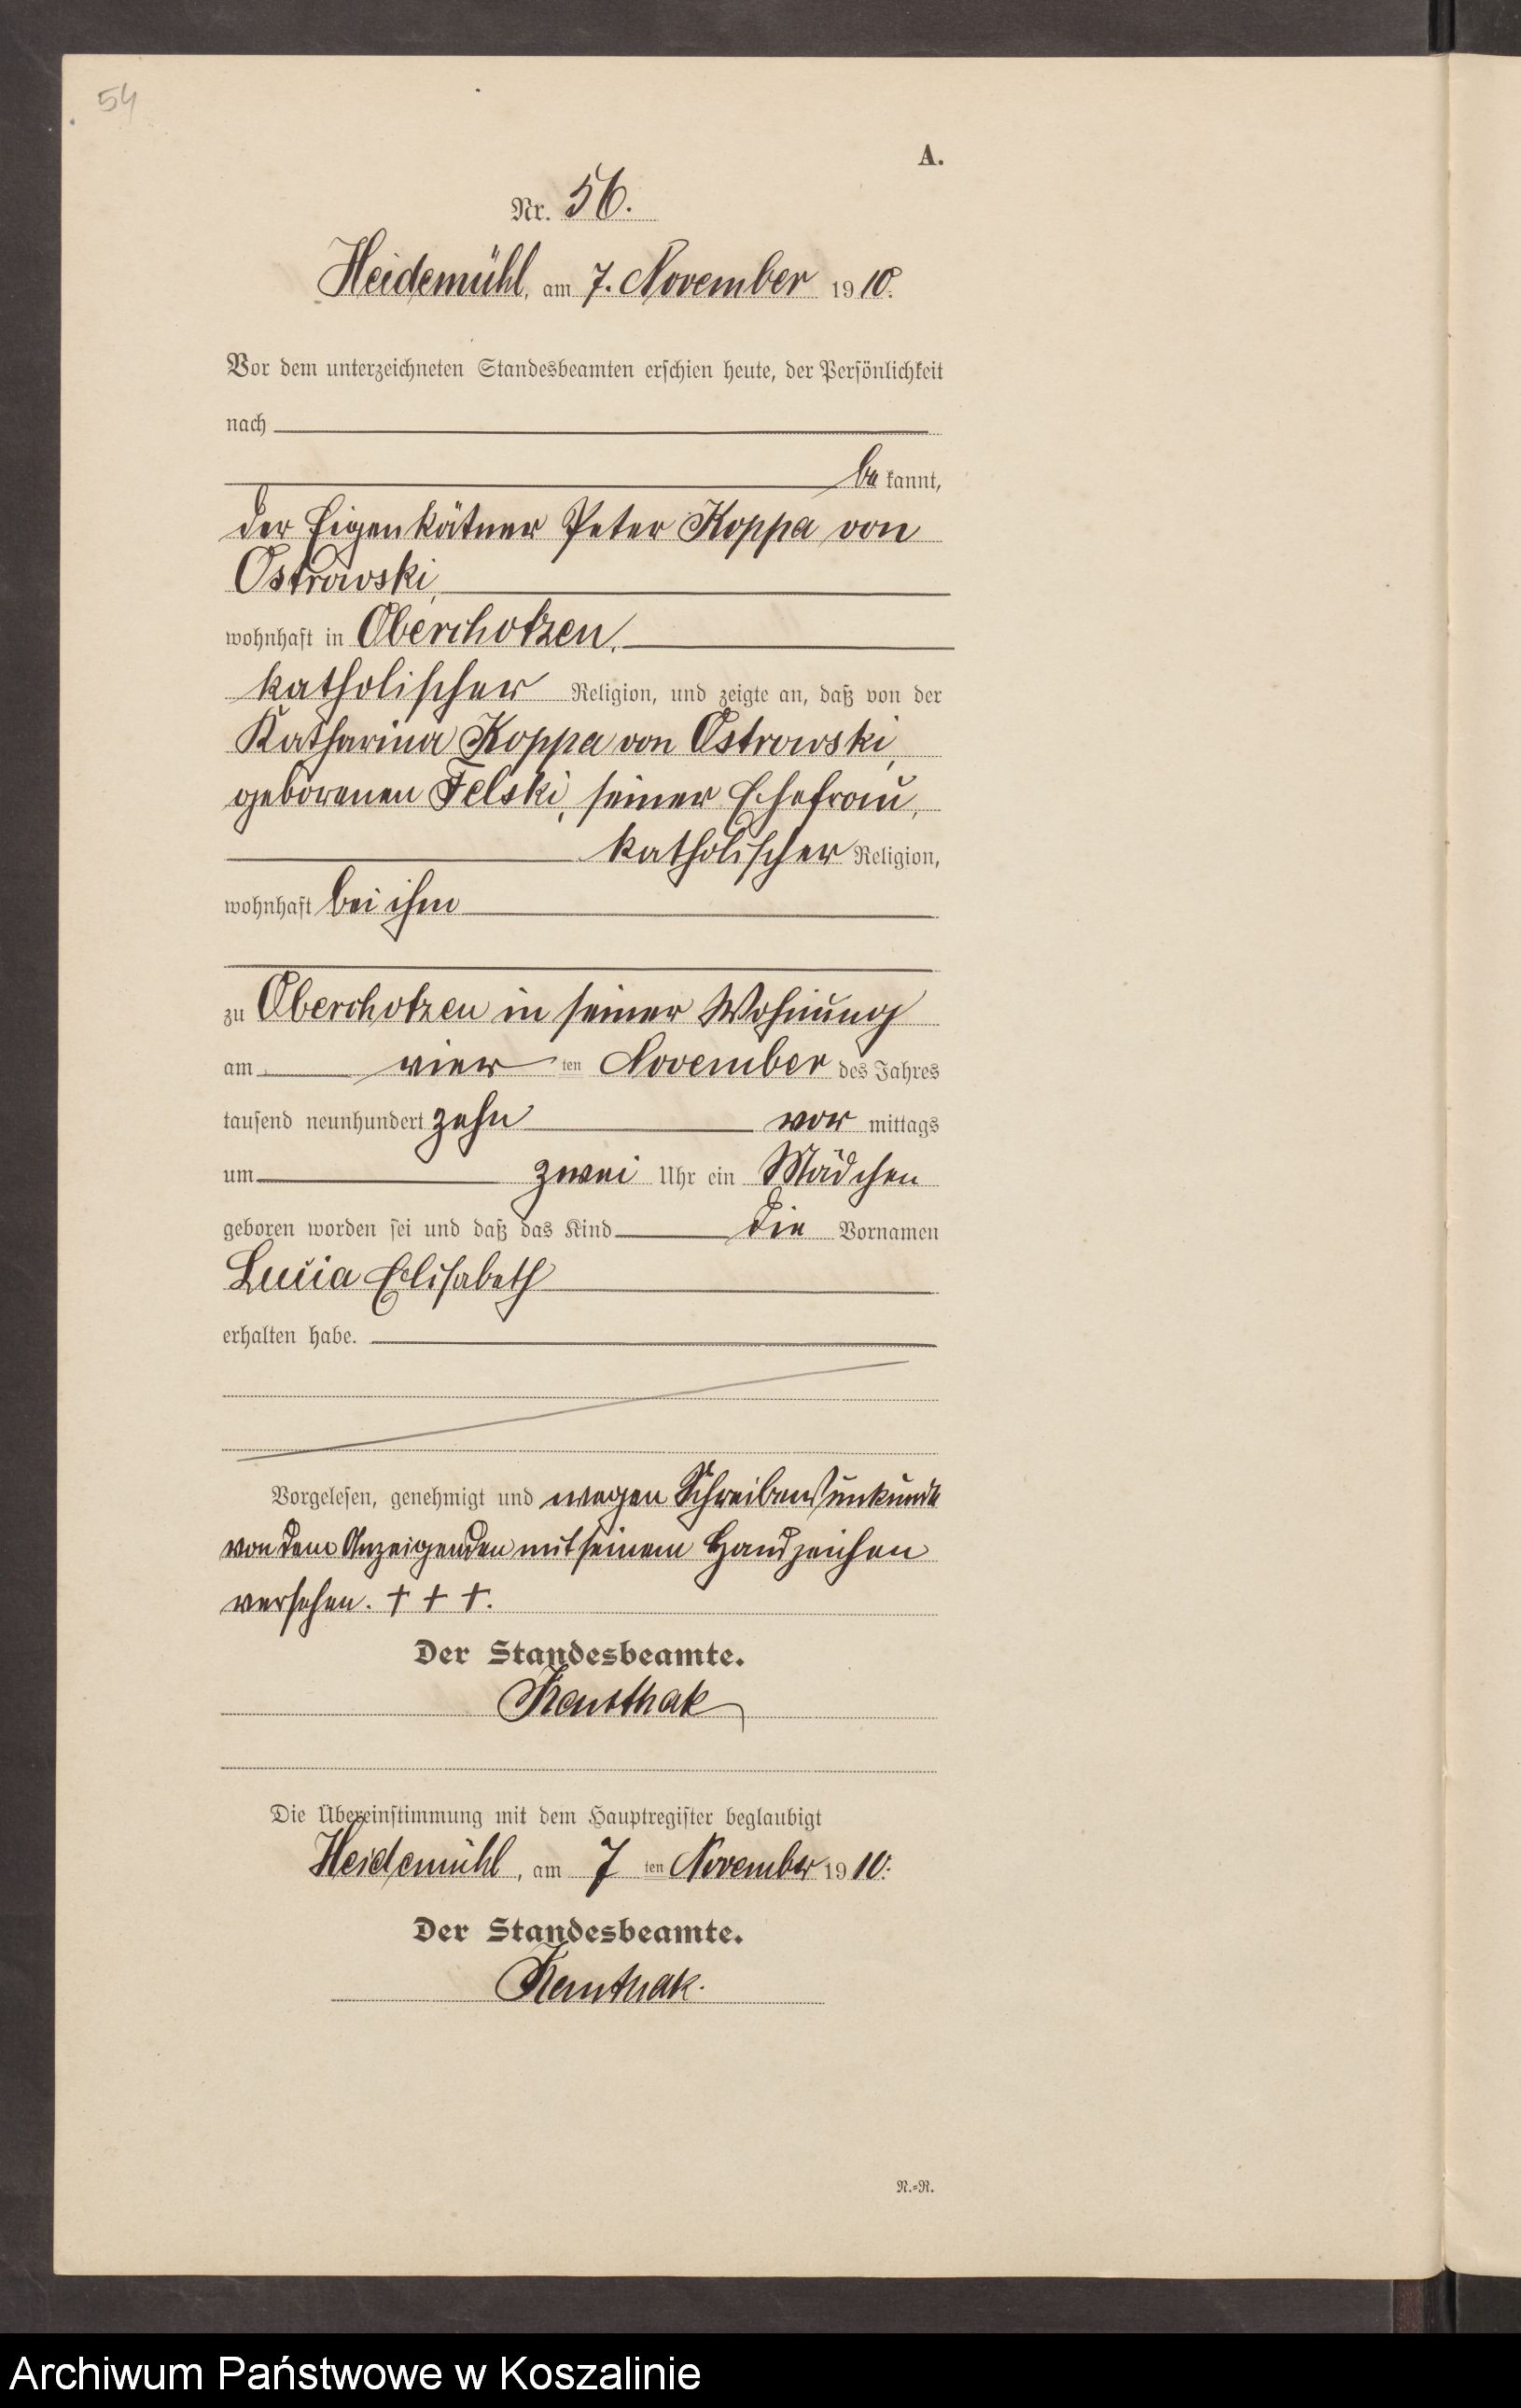 54
A.
Nr. 56.
Heidemühl, am 7. November 1910.
Vor dem unterzeichneten Standesbeamten erschien heute, der Persönlichkeit
nach
bekannt,
der Eigenkätner Peter Koppa von
Ostrowski,
wohnhaft in Oberchotzen,
katholischer Religion, und zeigte an, daß von der
Katharina Koppa von Ostrowski,
geborenen Felski, seiner Ehefrau,
katholischer Religion,
wohnhaft bei ihm
zu Oberchotzen in seiner Wohnung
am vierten November des Jahres
tausend neunhundert zehn vormittags
um zwei Uhr ein Mädchen
geboren worden sei und daß das Kind die Vornamen
Lucia Elisabeth
erhalten habe.
Vorgelesen, genehmigt und wegen Schreibensunkunde
von dem Anzeigenden mit seinem Handzeichen
versehen. + + +.
Der Standesbeamte.
Die Übereinstimmung mit dem Hauptregister beglaubigt
Heidemühl, am 7ten November 1910.
Der Standesbeamte.
N.=R.
Archiwum Państwowe w Koszalinie